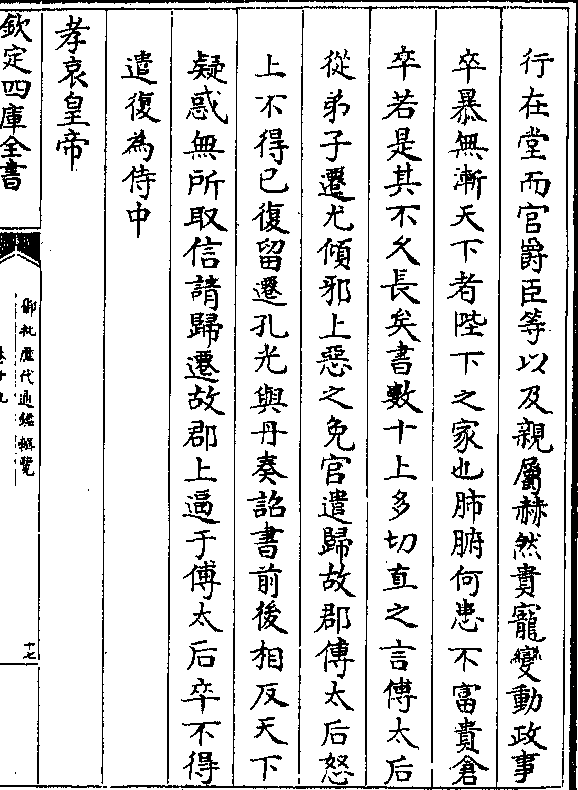 行在堂而官爵臣等以及親屬赫然貴寵變動政事
卒暴無漸天下者陛下之家也肺腑何患不富貴倉
卒若是其不久長矣書數十上多切直之言傅太后
從弟子遷尤傾邪上惡之免官遣歸故郡傅太后怒
上不得已復留遷孔光與丹奏詔書前後相反天下
疑惑無所取信請歸遷故郡上逼于傅太后卒不得
遣復為侍中
孝哀皇帝
欽定四庫全書
御批歷代通鑑輯覽
卷十九
十七